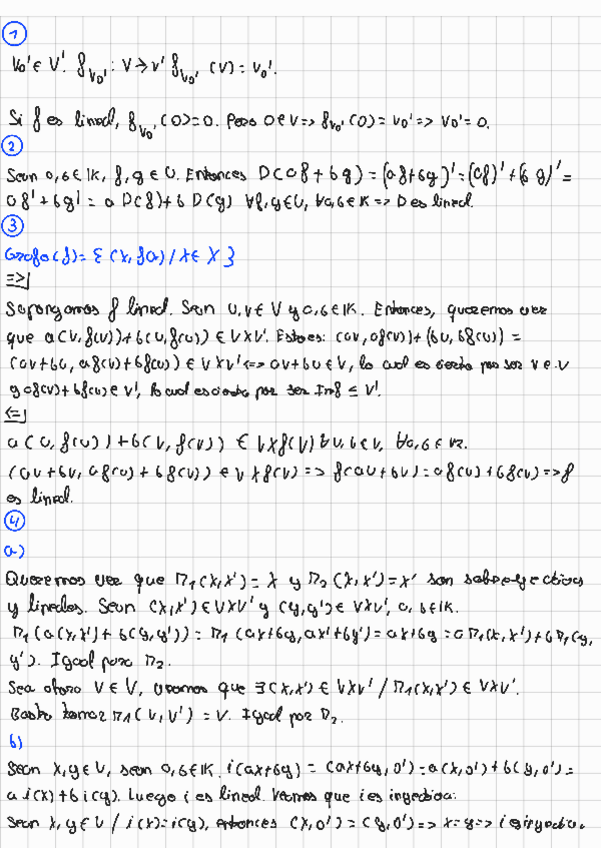 1
V₀' ∈ V'. f_{V₀'} : V → V' f_{V₀'} (V) = V₀'.
Si f es lineal, f_{V₀'} (0) = 0. Pero 0 ∈ V => f_{V₀'} (0) = V₀' => V₀' = 0.
2
Sean a, b ∈ IK, f, g ∈ U. Entonces D(af + bg) = (af + bg)' = (af)' + (bg)' =
af' + bg' = a D(f) + b D(g) ∀f, g ∈ U, ∀a, b ∈ K => D es lineal.
3
Grafo(f) = {(x, f(x)) / x ∈ X}
=>|
Supongamos f lineal. Sean u, v ∈ V y a, b ∈ IK. Entonces, queremos ver
que a(v, f(v)) + b(u, f(u)) ∈ V×V'. Esto es: (av, af(v)) + (bu, bf(u)) =
(av + bu, af(v) + bf(u)) ∈ V×V' <=> av + bu ∈ V, lo cual es cierto por ser v, u ∈ V
y af(v) + bf(u) ∈ V', lo cual es cierto por ser Imf ≤ V'.
<=|
a(u, f(u)) + b(v, f(v)) ∈ V×f(V) ∀u, v ∈ V, ∀a, b ∈ IK.
(au + bv, af(u) + bf(v)) ∈ V×f(V) => f(au + bv) = af(u) + bf(v) => f
es lineal.
4
a)
Queremos ver que π₁(x, x') = x y π₂(x, x') = x' son sobreyectivas
y lineales. Sean (x, x') ∈ V×V' y (y, y') ∈ V×V', a, b ∈ IK.
π₁(a(x, x') + b(y, y')) = π₁(ax + by, ax' + by') = ax + by = aπ₁(x, x') + bπ₁(y,
y'). Igual para π₂.
Sea ahora v ∈ V, veamos que ∃(x, x') ∈ V×V' / π₁(x, x') ∈ V×V'.
Basta tomar π₁(v, v') = v. Igual por π₂.
b)
Sean x, y ∈ V, sean a, b ∈ IK. i(ax + by) = (ax + by, 0') = a(x, 0') + b(y, 0') =
a i(x) + b i(y). Luego i es lineal. Veamos que i es inyectiva:
Sean x, y ∈ V / i(x) = i(y), entonces (x, 0') = (y, 0') => x = y => i es inyectiva.